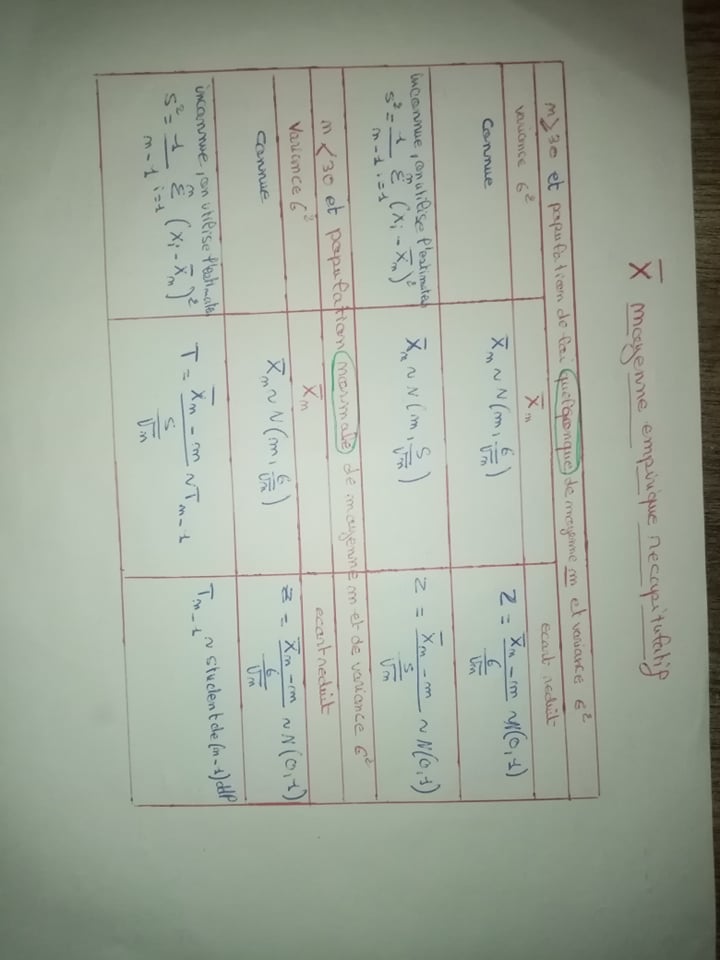 X̄ moyenne empirique recapitulatif
n ≥ 30 et population de loi quelconque de moyenne m et variance σ²
variance σ² X̄n ecart reduit
Connue X̄n ~ N(m, σ/√n) Z = (X̄n − m)/(σ/√n) ~ N(0,1)
inconnue, on utilise l'estimateur
s² = 1/(n−1) Σ_{i=1}^{n} (xi − X̄n)² X̄n ~ N(m, s/√n) Z = (X̄n − m)/(s/√n) ~ N(0,1)
n < 30 et population normale de moyenne m et de variance σ²
Variance σ² X̄n ecart reduit
Connue X̄n ~ N(m, σ/√n) Z = (X̄n − m)/(σ/√n) ~ N(0,1)
inconnue, on utilise l'estimate
s² = 1/(n−1) Σ_{i=1}^{n} (xi − X̄n)² T = (X̄n − m)/(s/√n) ~ Tn−1 Tn−1 ~ student de (n−1) ddl